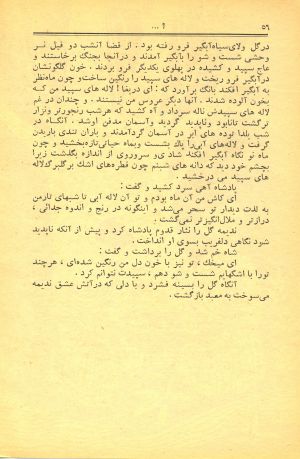 ۵۶
آ ...
درگل ولای‌سیاه‌آبگیر فرو رفته بود. از قضا آنشب دو فیل نر
وحشی شست و شو را بآبگیر آمدند و درآنجا بجنگ برخاستند و
عاج سپید و کشیده در پهلوی یکدیگر فرو بردند. خون گلگونشان
درآبگیر فرو ریخت و لاله های سپید را رنگین ساخت‌وچون ماه‌نظر
به آبگیر افکند بانگ برآورد که: ای دریغا! لاله های سپید من که
بخون آلوده شدند. آنها دیگر عروس من نیستند. و چندان در غم
لاله های سپیدش ناله سرداد و آه کشید که هرشب رنجورتر ونزار
ترگشت تانابود وناپدید گردید وآسمان مدفن اوشد. آنگاه در
شب یلدا توده های ابر در آسمان گردآمدند و باران تندی باریدن
گرفت و لاله های آبی‌را پاک بشست وبماه حیاتی‌تازه‌بخشید و چون
ماه نو نگاه بآبگیر افکند شادی‌و سروروی از اندازه بگذشت زیرا
بچشم خود دید که دانه های شبنم چون قطره‌های اشك برگلبرگ‌لاله
های سپید می درخشید.
پادشاه آهی سرد کشید و گفت:
ای کاش من آن ماه بودم و تو آن لاله آبی تاشبهای تارمن
به لذت دیدار تو سحر می‌شد و اینگونه در رنج و اندوه جدائی،
درازتر و ملال‌انگیزتر نمی‌گشت.
ندیمه گل را نثار قدوم پادشاه کرد و پیش از آنکه ناپدید
شود نگاهی دلفریب بسوی او انداخت.
شاه خم شد و گل را برداشت و گفت:
ای میخك، تو نیز با خون دل من رنگین شده‌ای، هرچند
تورا با اشکهایم شست و شو دهم، سپیدت نتوانم کرد.
آنگاه گل را بسینه فشرد و با دلی که درآتش عشق ندیمه
می‌سوخت به معبد بازگشت.